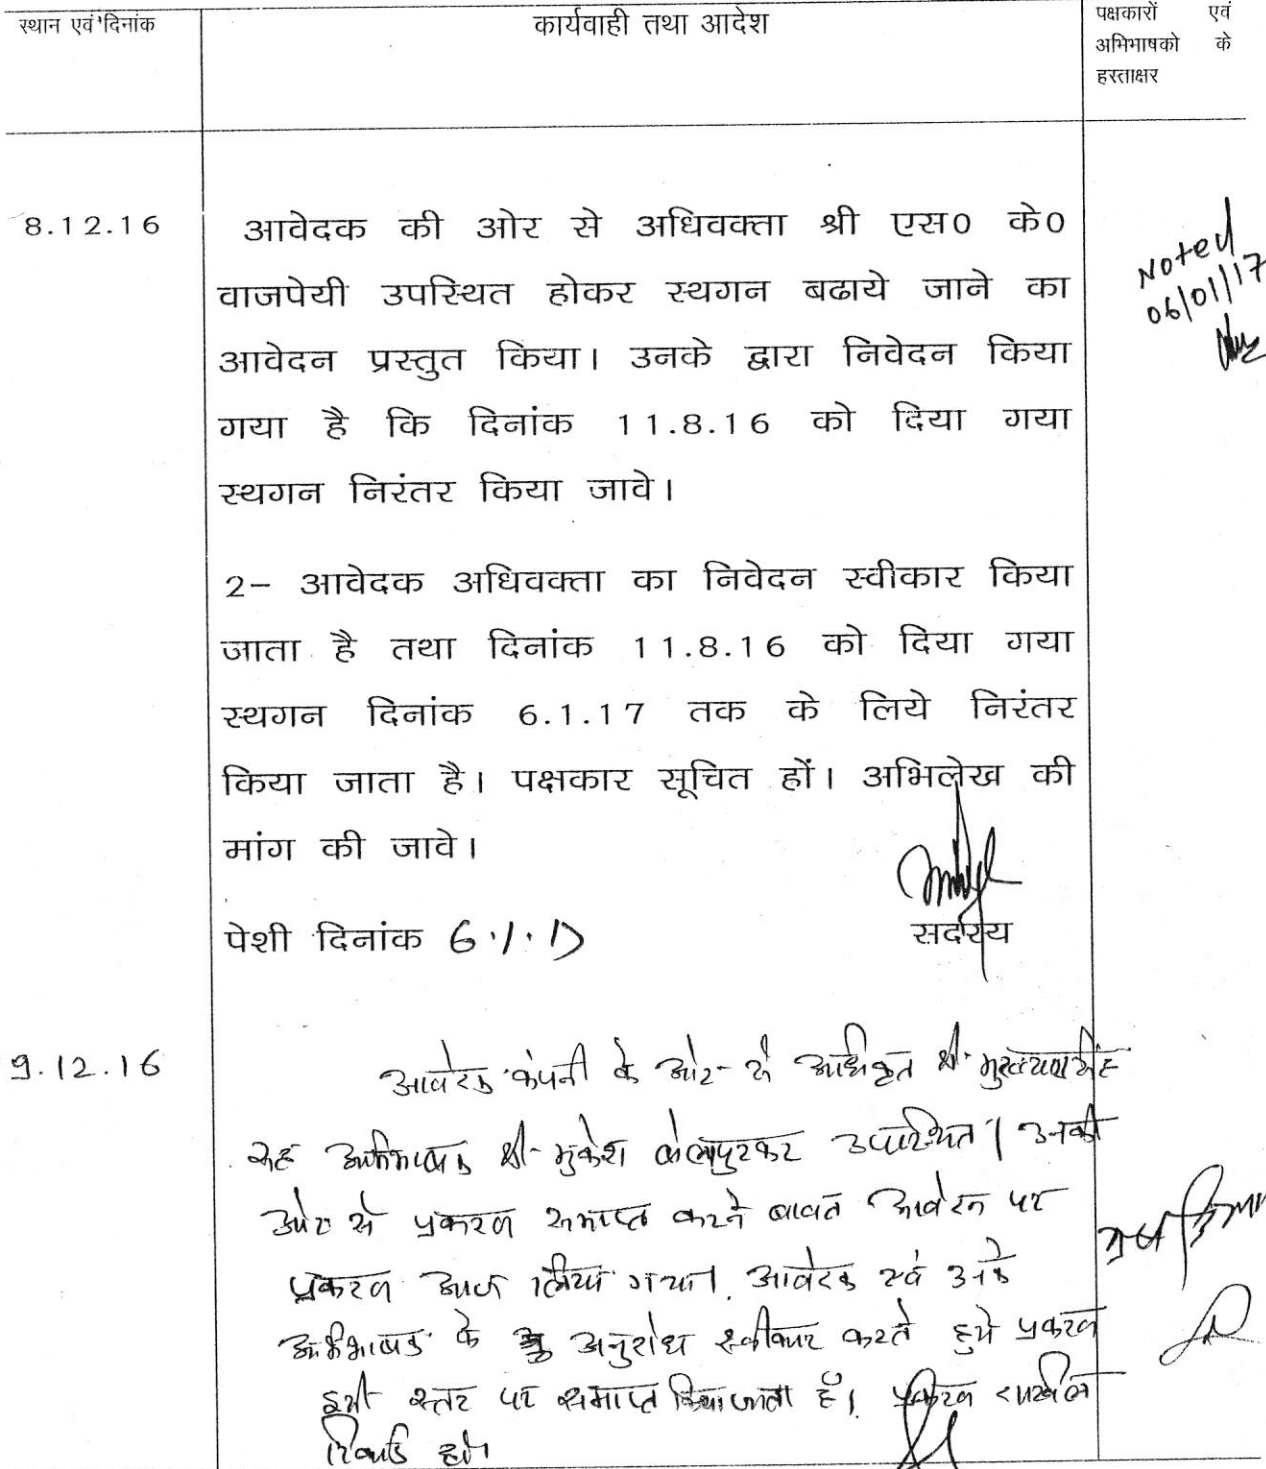 स्थान एवं दिनांक
कार्यवाही तथा आदेश
पक्षकारों एवं
अभिभाषको के
हस्ताक्षर
8.12.16
आवेदक की ओर से अधिवक्ता श्री एस0 के0
वाजपेयी उपस्थित होकर स्थगन बढाये जाने का
आवेदन प्रस्तुत किया। उनके द्वारा निवेदन किया
गया है कि दिनांक 11.8.16 को दिया गया
स्थगन निरंतर किया जावे।
Noted
06/01/17
2- आवेदक अधिवक्ता का निवेदन स्वीकार किया
जाता है तथा दिनांक 11.8.16 को दिया गया
स्थगन दिनांक 6.1.17 तक के लिये निरंतर
किया जाता है। पक्षकार सूचित हों। अभिलेख की
मांग की जावे।
पेशी दिनांक 6.1.17
सदस्य
9.12.16
आवेदक कंपनी के ओर से अधिकृत श्री
सह अभिभाषक श्री मुकेश उपस्थित। उनकी
ओर से प्रकरण समाप्त करने बावत आवेदन पर
प्रकरण आज लिया गया। आवेदक एवं उनके
अभिभाषक के अनुरोध स्वीकार करते हुये प्रकरण
इसी स्तर पर समाप्त किया जाता है। प्रकरण दाखिल
रिकार्ड हो।